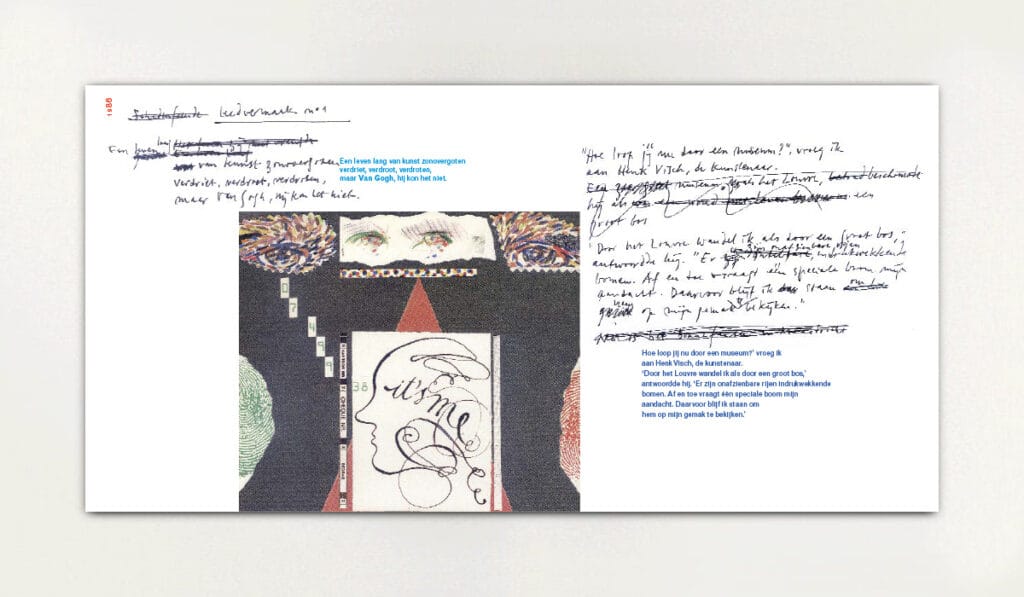 1988
leedvermaak no 1
Een leven lang
van kunst zonovergoten
verdriet, verdroot, verdroten,
maar Van Gogh, hij kon het niet.
Een leven lang van kunst zonovergoten
verdriet, verdroot, verdroten,
maar Van Gogh, hij kon het niet.
0
7
4
9
9
38
CHEQUE NR.
it's me
"Hoe loop jij nu door een museum?", vroeg ik
aan Henk Visch, de kunstenaar.
museum het Louvre,
hij als een
groot bos
"Door het Louvre wandel ik als door een groot bos,"
zijn onafzienbare rijen
antwoordde hij. "Er indrukwekkende
bomen. Af en toe vraagt één speciale boom mijn
aandacht. Daarvoor blijf ik staan om
op mijn gemak te bekijken."
Hoe loop jij nu door een museum?’ vroeg ik
aan Henk Visch, de kunstenaar.
‘Door het Louvre wandel ik als door een groot bos,’
antwoordde hij. ‘Er zijn onafzienbare rijen indrukwekkende
bomen. Af en toe vraagt één speciale boom mijn
aandacht. Daarvoor blijf ik staan om
hem op mijn gemak te bekijken.’